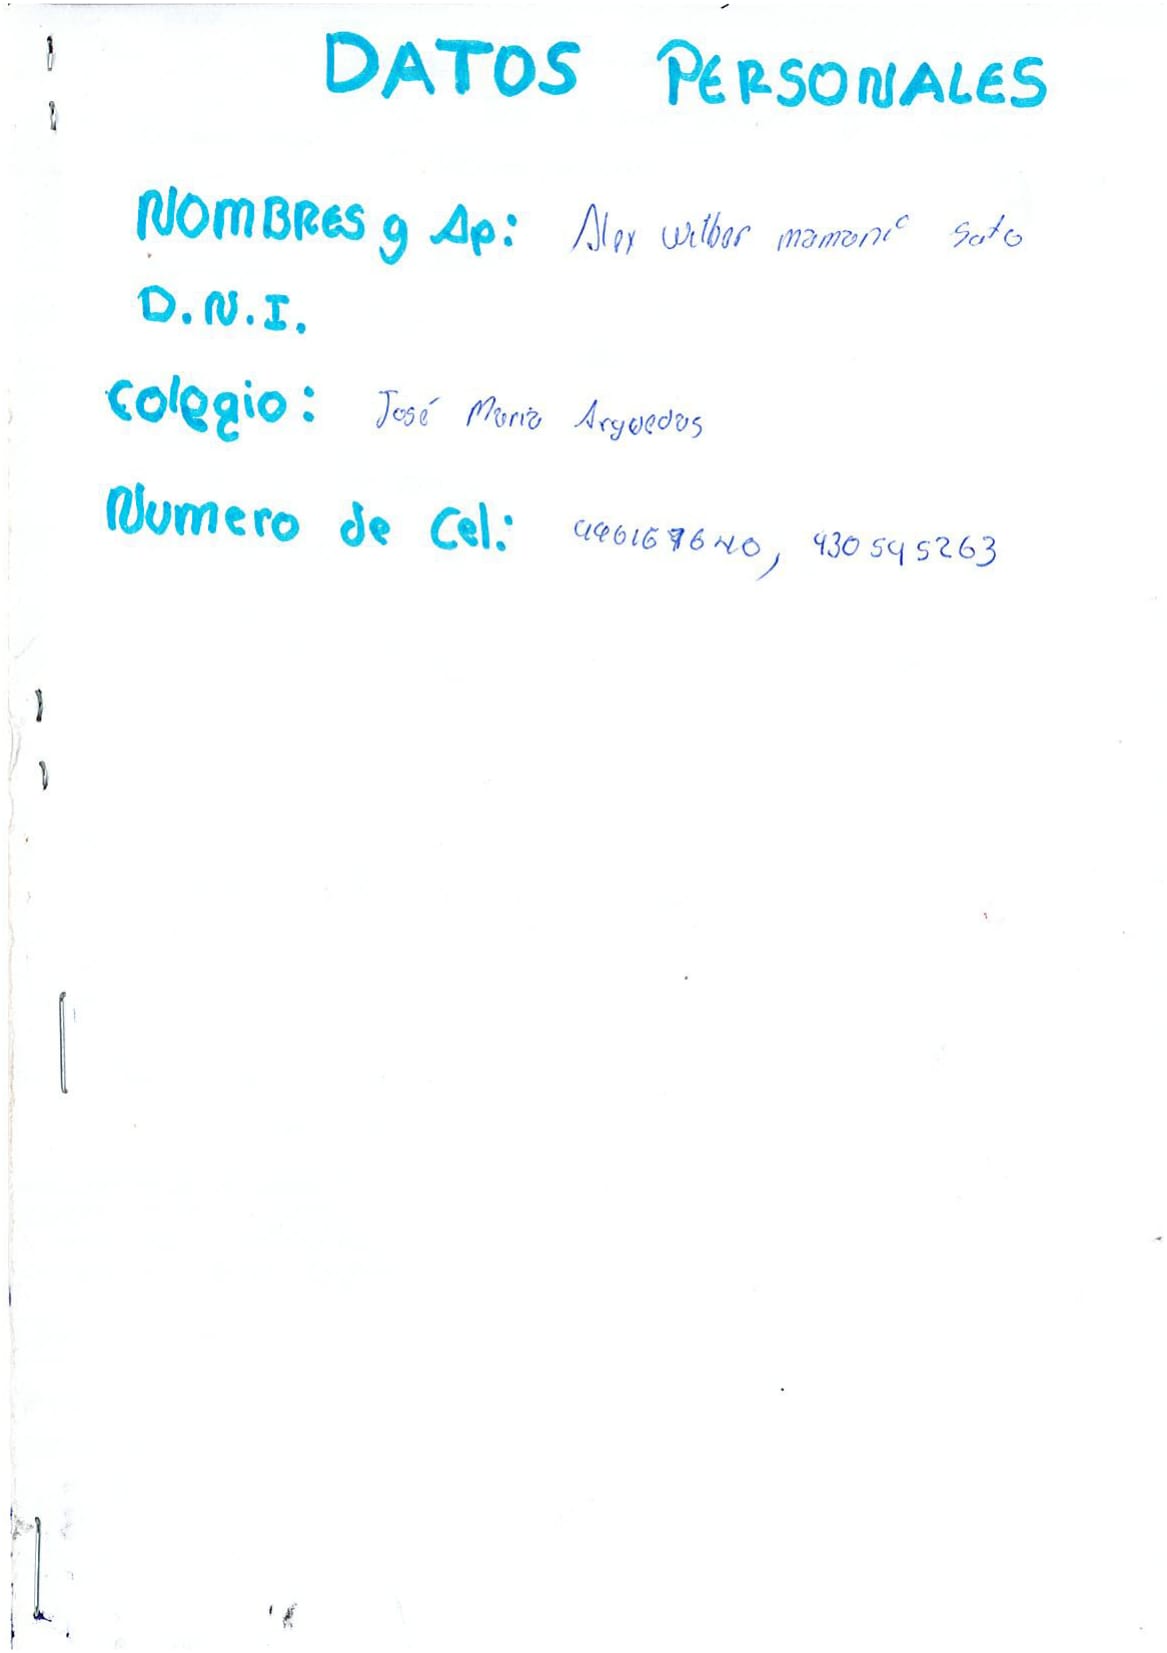 DATOS PERSONALES
NOMBRES y Ap: Alex Wilber mamani Soto
D.N.I.
Colegio: José Maria Arguedas
Numero de Cel: 930545263